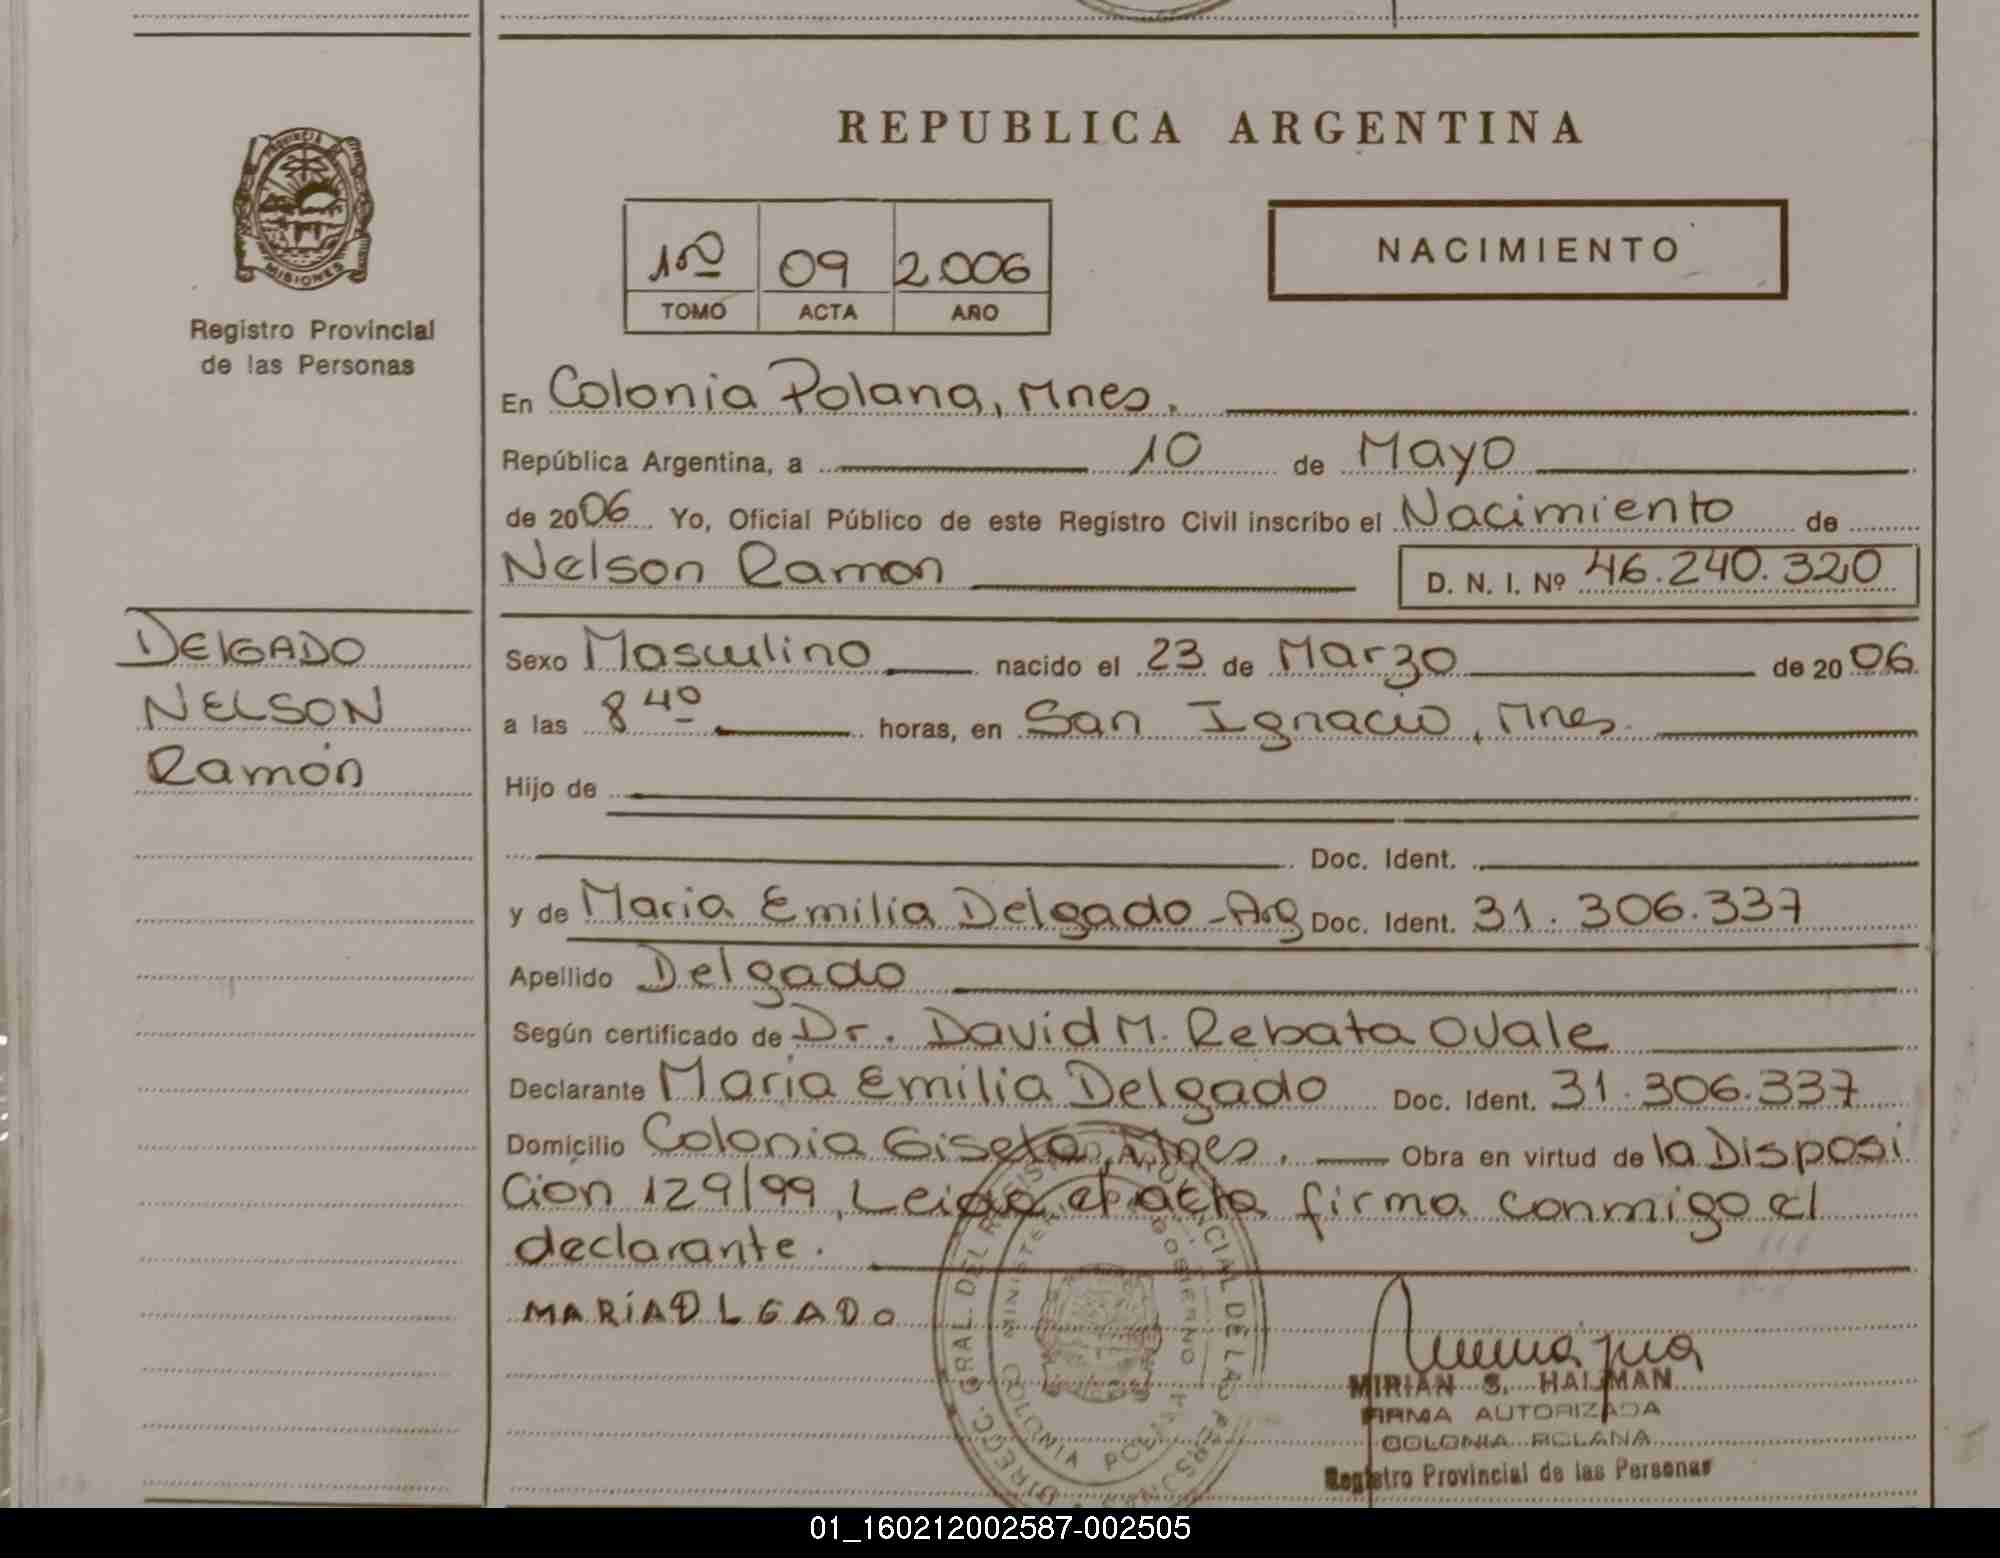 PROVINCIA
MISIONES
Registro Provincial
de las Personas
DELGADO
NELSON
Ramón
REPUBLICA ARGENTINA
1ro 09 2.006
TOMO ACTA AÑO
NACIMIENTO
En Colonia Polana, Mnes.
República Argentina, a 10 de Mayo
de 2006 Yo, Oficial Público de este Registro Civil inscribo el Nacimiento de
Nelson Ramon D. N. I. Nº 46.240.320
Sexo Masculino nacido el 23 de Marzo de 2006.
a las 8 40 horas, en San Ignacio, Mnes.
Hijo de
Doc. Ident.
y de Maria Emilia Delgado - Arg Doc. Ident. 31.306.337
Apellido Delgado
Según certificado de Dr. David M. Rebata Ovale
Declarante Maria Emilia Delgado Doc. Ident. 31.306.337
Domicilio Colonia Gisela, Mnes. Obra en virtud de la Disposi
cion 129/99, Leida el acta firma conmigo el
declarante.
MARÍA DLGADO
DIRECC. GRAL. DEL REGIST PROVINCIAL DE LAS PERSONAS
MINISTERIO GOBIERNO
COLONIA POLANA
MIRIAN S. HALMAN
FIRMA AUTORIZADA
COLONIA POLANA
Registro Provincial de las Personas
01_160212002587-002505